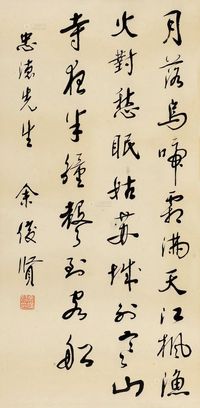 月落烏啼霜滿天江楓漁
火對愁眠姑蘇城外寒山
寺夜半鐘聲到客船
忠德先生 余俊賢